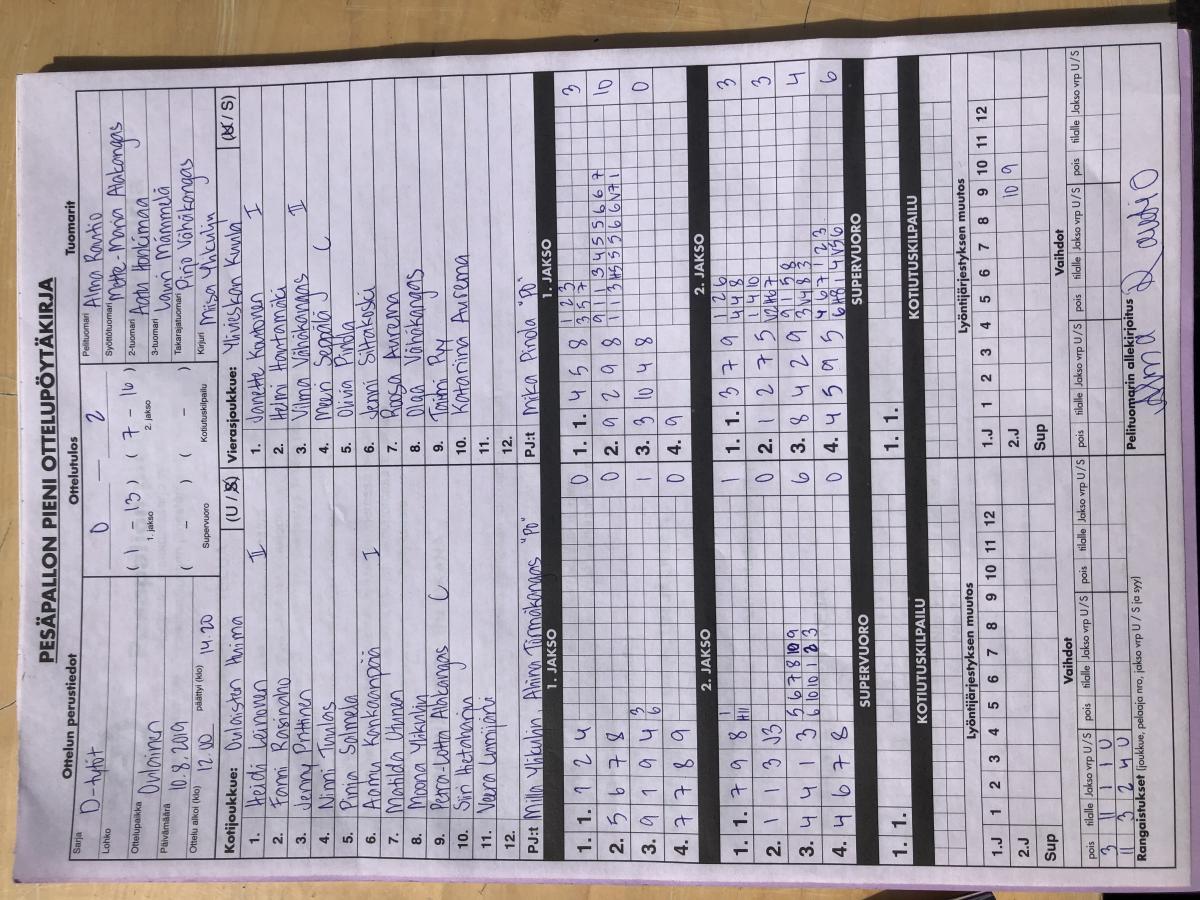 PESÄPALLON PIENI OTTELUPÖYTÄKIRJA
Ottelun perustiedot
Ottelutulos
Tuomarit
Sarja D-tytöt
Lohko
Ottelupaikka Oulainen
Päivämäärä 10.8.2019
Ottelu alkoi (klo) 12.00 päättyi (klo) 14.20
0 — 2
( 1 - 13 ) ( 7 - 16 )
1. jakso 2. jakso
( - ) ( - )
Supervuoro Kotiutuskilpailu
Pelituomari Alma Rautio
Syöttötuomari Mette-Maria Alakangas
2-tuomari Aada Honkimaa
3-tuomari Lauri Mämmelä
Takarajatuomari Pinjo Vähäkangas
Kirjuri Miisa Yhkulin
Kotijoukkue: Oulaisten Huima (U / S)
1. Heidi Leinonen II
2. Fanni Rasinaho
3. Jenny Prittinen
4. Ninni Tuulas
5. Pinja Salmela
6. Aamu Kankaanpää I
7. Matilda Uitunen
8. Moona Ylikulju
9. Petra-Lotta Alakangas C
10. Siiri Hietaharju
11. Veera Lumijärvi
12.
PJ:t Milla Yhkulin, Alina Törmäkangas "PO"
Vierasjoukkue: Ylivieskan Kuula (U / S)
1. Janette Kauttonen I
2. Helmi Hautamäki
3. Vilma Vähäkangas II
4. Meeri Seppälä C
5. Olivia Pirttola
6. Jenni Siltakoski
7. Roosa Aurema
8. Olga Vähäkangas
9. Taimi Puy
10. Katariina Aurema
11.
12.
PJ:t Mika Pirola "PO"
1. JAKSO
1. JAKSO
1. 1. 1 2 4 0
2. 5 6 7 8 0
3. 9 1 9 4 3 6 1
4. 7 7 8 9 0
1. 1. 4 5 8 1 2 3 3 5 7 3
2. 9 2 9 8 9 1 1 3 4 5 5 6 6 7 10
3. 3 10 4 8 0
4. 9
2. JAKSO
2. JAKSO
1. 1. 7 9 8 1 1
2. 1 1 3 13 0
3. 4 4 1 3 5 6 7 8 10 9 6 10 10 1 2 3 6
4. 4 6 7 8 0
1. 1. 3 7 9 1 2 6 4 4 8 3
2. 1 2 7 5 1 4 10 3
3. 8 4 2 9 9 1 5 8 3 4 8 3 4
4. 4 5 9 5 4 6 7 1 2 3 6
SUPERVUORO
SUPERVUORO
1. 1.
1. 1.
KOTIUTUSKILPAILU
KOTIUTUSKILPAILU
Lyöntijärjestyksen muutos
Lyöntijärjestyksen muutos
1.J 1 2 3 4 5 6 7 8 9 10 11 12
2.J
Sup
1.J 1 2 3 4 5 6 7 8 9 10 11 12
2.J 10 9
Sup
Vaihdot
Vaihdot
pois tilalle Jakso vrp U/S pois tilalle Jakso vrp U/S pois tilalle Jakso vrp U/S
3 11 1 1 U
11 3 2 4 U
pois tilalle Jakso vrp U/S pois tilalle Jakso vrp U/S pois tilalle Jakso vrp U/S
Rangaistukset (joukkue, pelaaja nro, jakso vrp U / S ja syy)
Pelituomarin allekirjoitus Alma Rautio